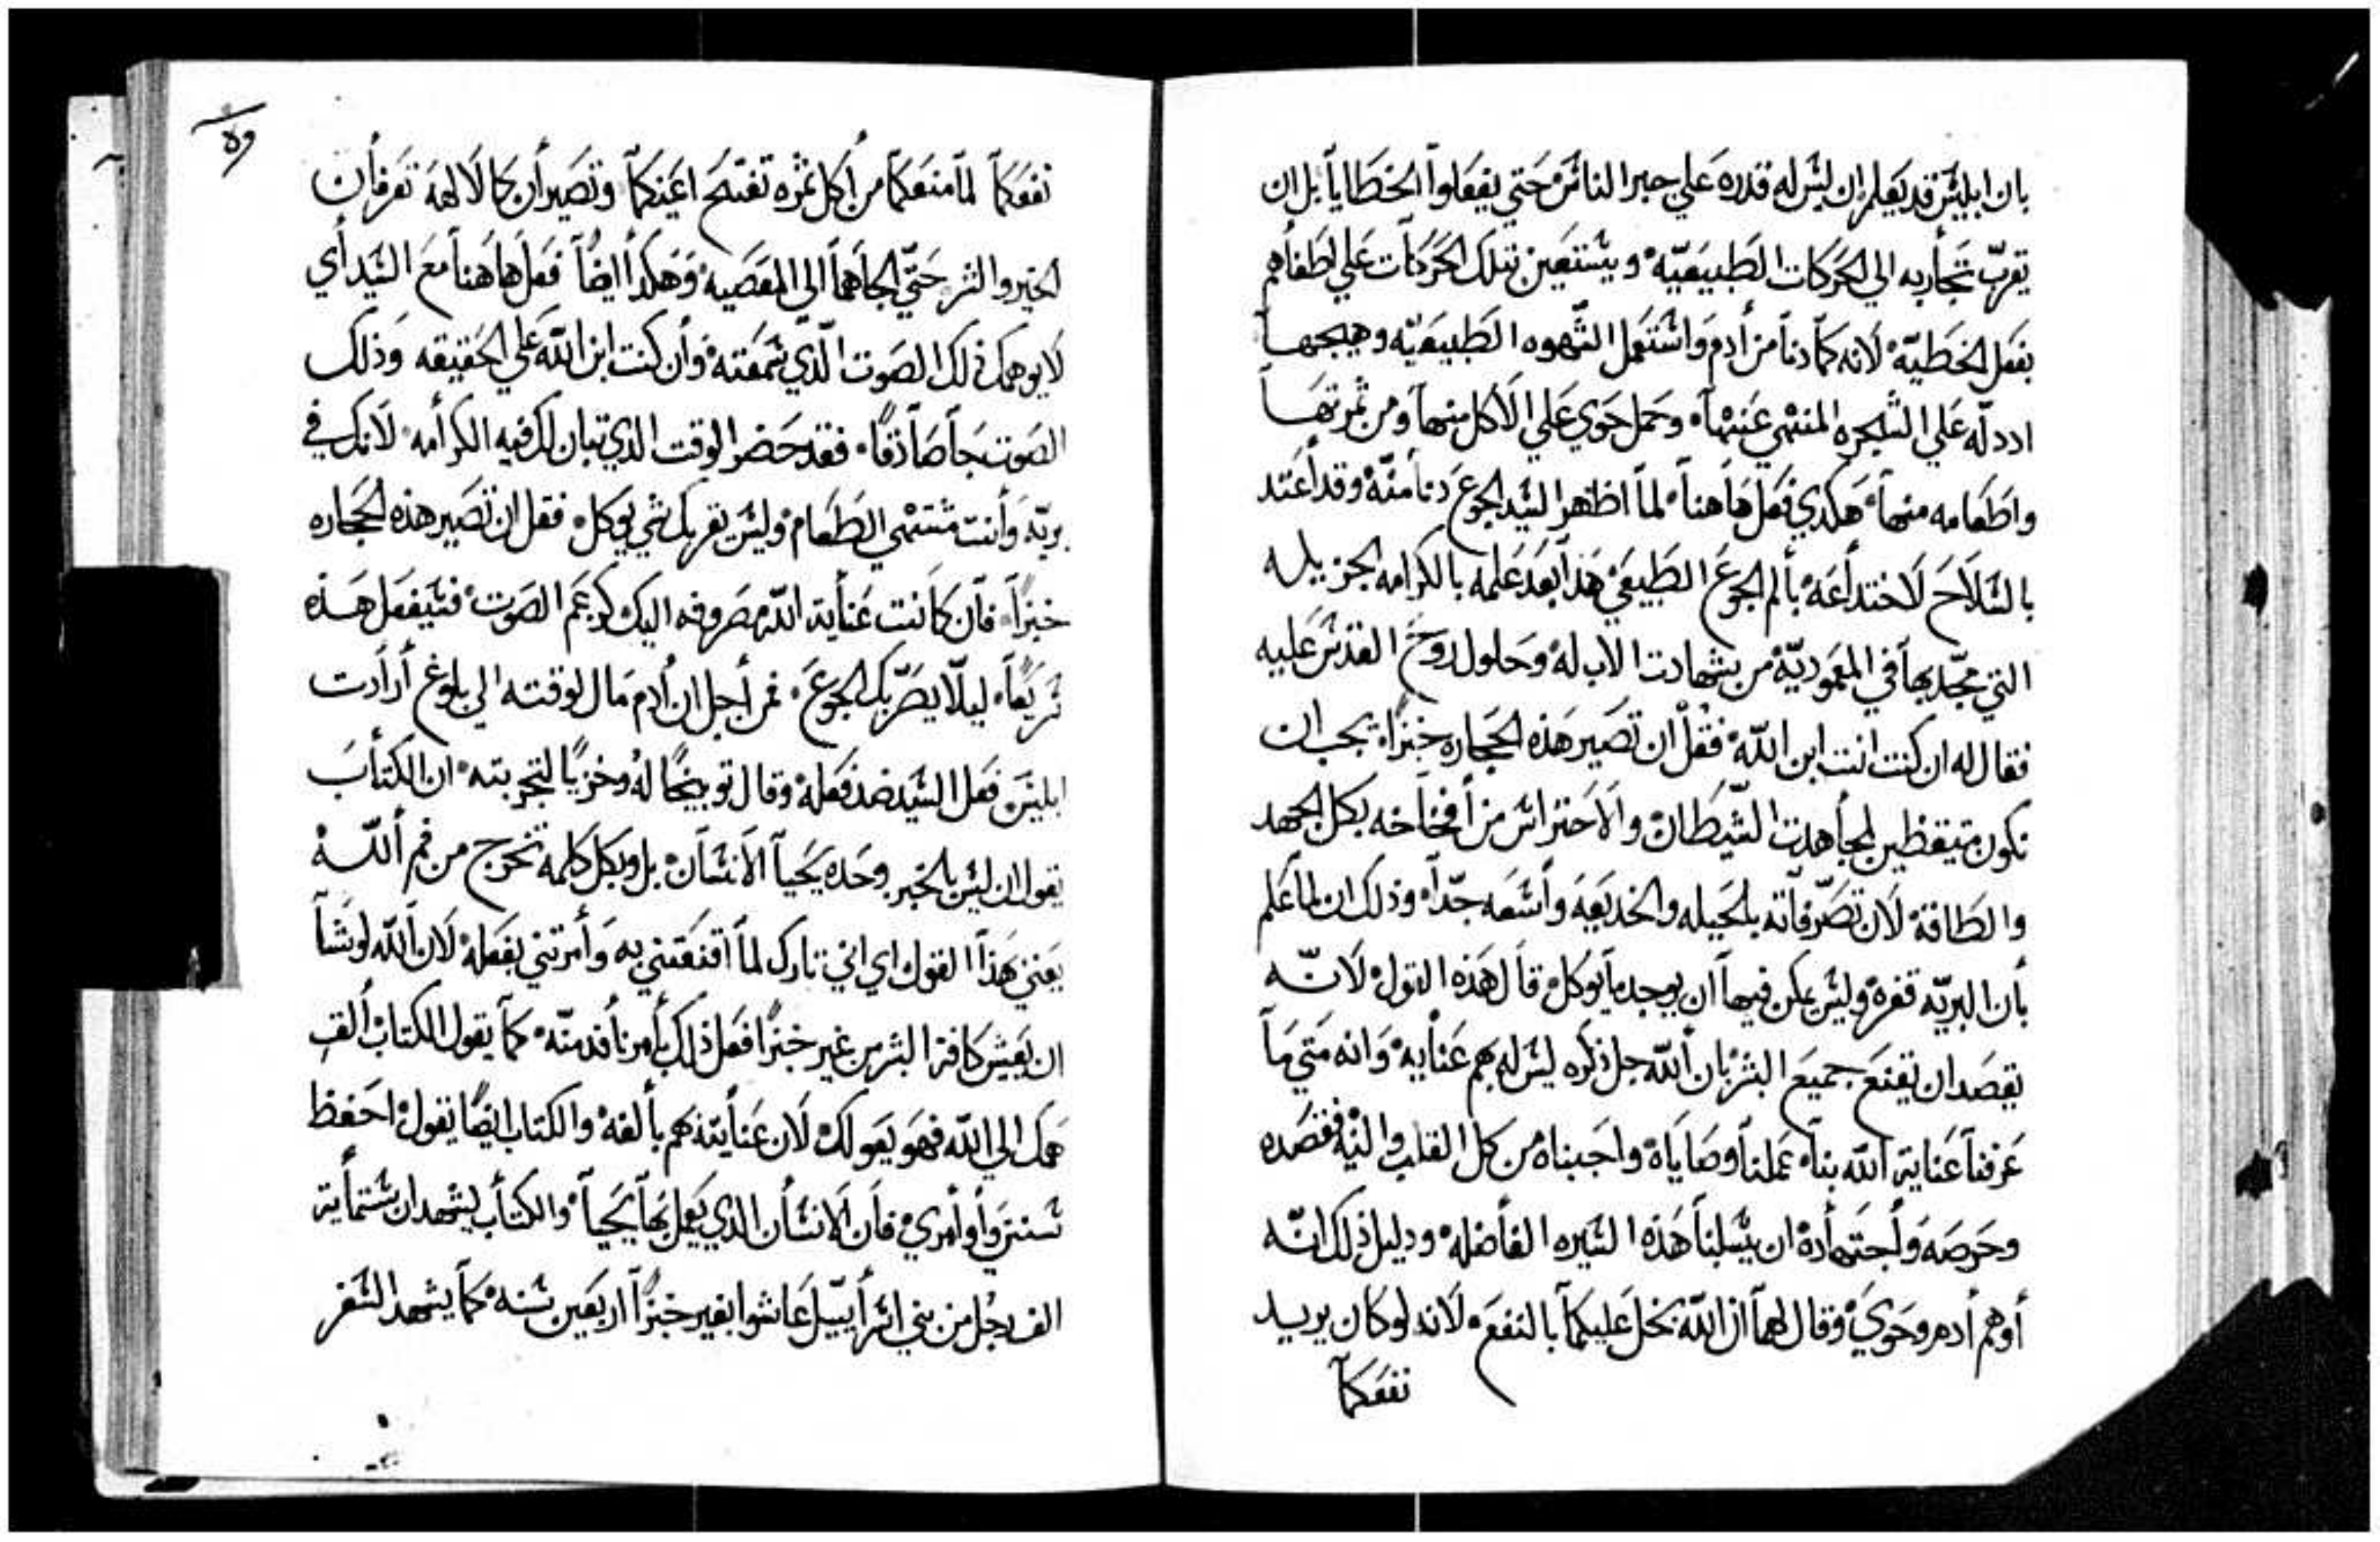 بان ابليس قد يعلم ان ليس له قدره علي جبر الناس حتي يفعلوا الخطايا بل ان
يقرب تجاربه الي الحركات الطبيعيه ويستعين بتلك الحركات علي
بفعل الخطيه لانه كما دنا من أدم واستعمل الشهوه الطبيعيه وهيجها
علي الشجره المنهي عنها وحمل حوي علي الاكل منها ومن ثمرتها
واطعامه منها هكدي فعل هاهنا لما اظهر السيد الجوع دنا منه وقد أعتد
بالسلاح لاختداعه بألم الجوع الطبيعي هذا بعد علمه بالكرامه الجزيله
التي مجد بها في المعموديه من شهادت الاب له وحلول روح القدس عليه
فقال له ان كنت انت ابن الله فقل ان تصير هذه الحجاره خبزا يجب ان
نكون متيقظين لمجأهدت الشيطان والاحتراس من أفخاخه بكل الجهد
والطاقة لان تصرفاته بلحيله والخديعه وأسعه جدا وذلك ان لما علم
بأن البريه قفره وليس يمكن فيها ان يوجد ما يوكل قال هذه القول لانه
يقصد ان يقنع جميع البشر بان ألله جل ذكره ليس له بهم عنأيه وانه متي ما
عرفنا عناية الله بنا عملنا وصاياه واحببناه من كل القلب والنيه فقصده
وحرصه وأجتهأده ان يسلبنا هذه السيره الفاضله ودليل ذلك انه
أوهم أدم وحوي وقال لهما ان الله بخل عليكما بالنفع لانه لو كان يريد
نفعكما
نفعكما لما منعكما من أكل ثمره تفتح اعينكما وتصيرأن كالالهه تعرفأن
الخير والشر حتي الجاهما الي المعصيه وهكدأ ايضا فعل هاهنا مع السيد أي
لا يوهمك ذلك الصوت الذي سمعته وأن كنت ابن الله علي الحقيقه وذلك
الصوت جا صادقا فقد حضر الوقت الذي تبان لك فيه الكرأمه لانك في
بريه وأنت مشتهي الطعام وليس بقربك شي يوكل فقل ان تصير هذه الحجاره
خبزا فان كانت عنأية الله مصروفه اليك كزعم الصوت فسيفعل هذه
سريعا ليلا يضر بك الجوع فمن أجل ان أدم مال لوقته الي بلوغ أرأدت
ابليس فعل السيد ضد فعله وقال توبيخا له وخزيا لتجربته ان الكتأب
يقول ان ليس بالخبز وحده يحيا الانسان بل وبكل كلمه تخرج من فم ألله
يعني هذا القول اي اني تارك لما أقنعتني به وأمرتني بفعله لان ألله لو شا
ان يعيش كافة البشر من غير خبزا فعل ذلك بأمر نافد منه كما يقول الكتاب ألق
همك الي الله فهو يعولك لان عنأيته بهم بألغه والكتاب ايضا يقول احفظ
سنني وأوأمري فان الانسأن الذي يعمل بها يحيا والكتأب يشهد ان ستمأية
الف رجل من بني اسرأييل عاشوا بغير خبزا اربعين سنه كما يشهد السفر